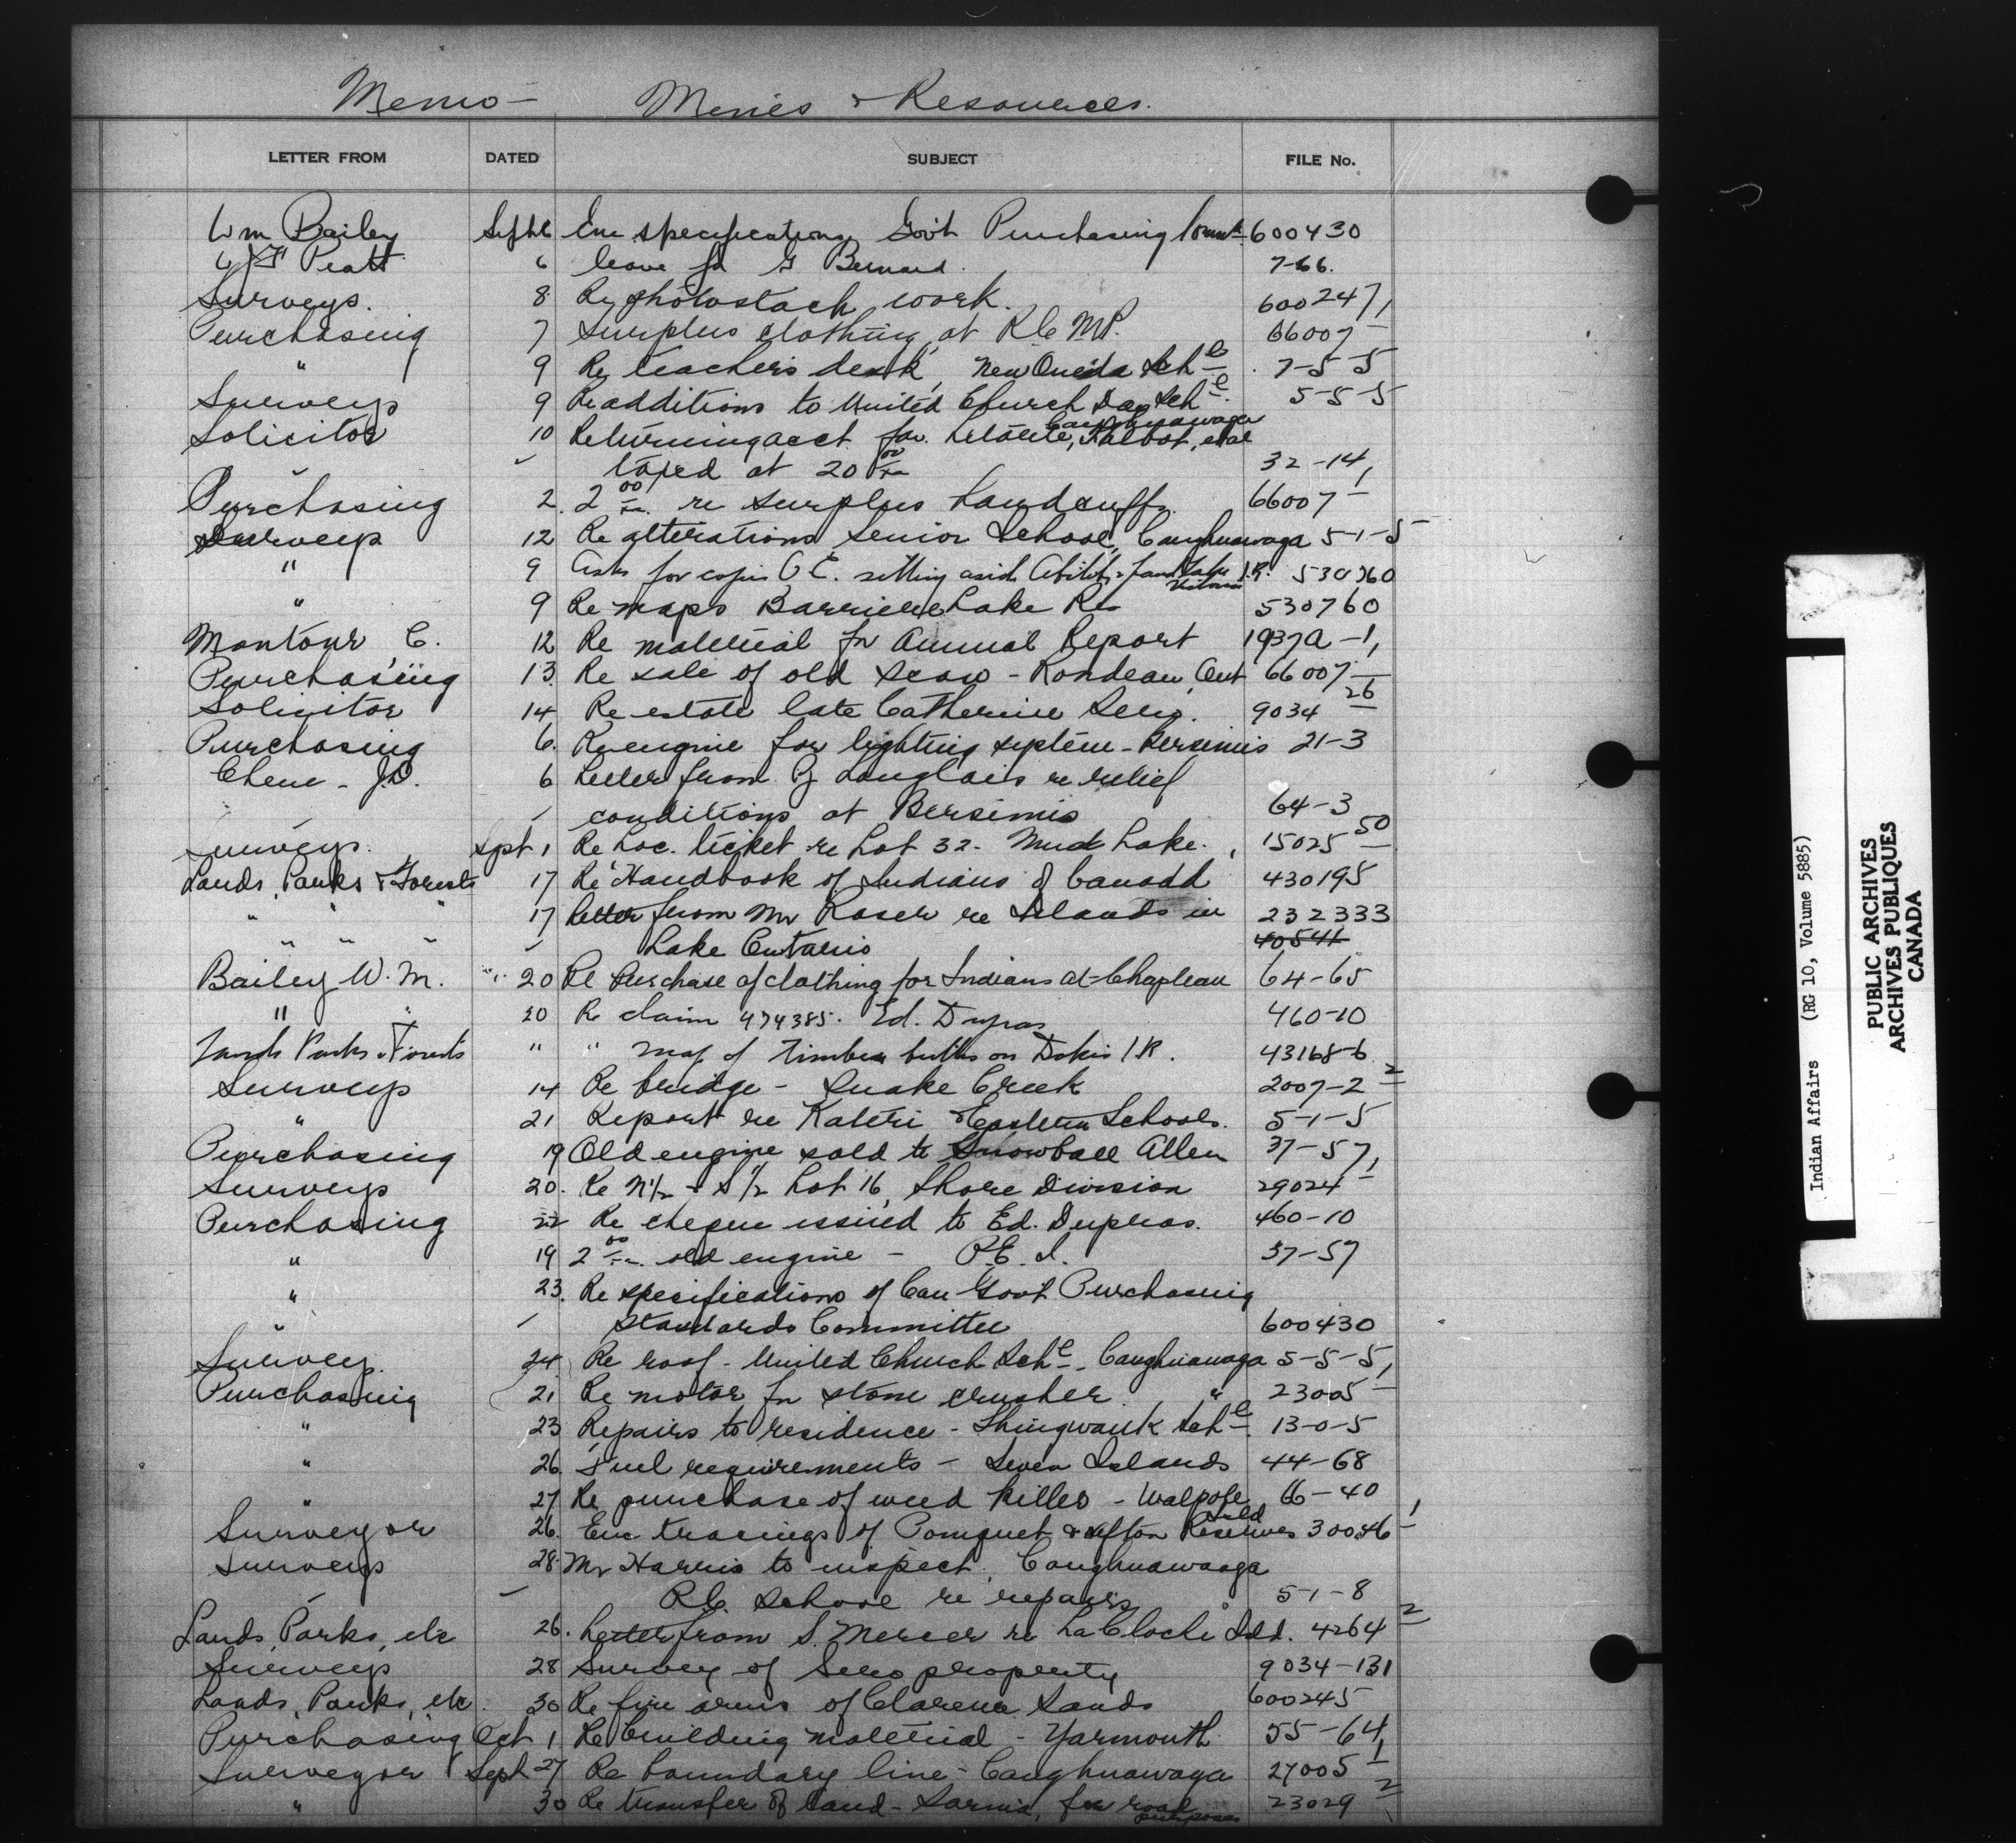 Memo - Mines & Resources.
LETTER FROM DATED SUBJECT FILE No.
Wm Bailey Sept 6 Enc specifications Gov't Purchasing 600430
Pratt 6 leave for Bernard. 7-66.
Surveys. 8 Re photostach work. 600247/1
Purchasing 7 Surplus clothing at R.C.M.P. 66007 -
" 9 Re teacher's desk, New Oneida Schl 7-5-5
Surveys 9 Re additions to United Church Day Schl. 5-5-5
Caughnawaga
Solicitor 10 Returning acct for Talbot, et al
" taxed at 20 00/xx 32-14/1
Purchasing 2 2 00/xx re surplus handcuffs 66007 -
Surveys 12 Re alterations Senior School, Caughnawaga 5-1-5
" 9 Asks for copies O.C. setting aside Abitibi & Grand Lake I.R. 530760
Victoria
" 9 Re maps Barriere Lake Res 530760
Montour C. 12 Re material for Annual Report 1937A-1,
Purchasing 13. Re sale of old scow - Rondeau, Ont 66007 -
Solicitor 14 Re estate late Catherine Sero. 9034 26
Purchasing 6. Re engine for lighting system - Bersimis 21-3
Chene - J.D. 6 Letter from Langlais re relief
conditions at Bersimis 64-3
Surveys. Sept 1 Re Loc. ticket re Lot 32 - Mud Lake. 15025 50
Lands, Parks & Forests 17 Re "Handbook of Indians of Canada 430195
" " " 17 letter from Mr Roser re Islands in 232333
" " " Lake Ontario 40541
Bailey W.M. " 20 Re Purchase of clothing for Indians at Chapleau 64-65
" 20 Re claim 474385. Ed. Dupras 460-10
Lands Parks & Forests " " map of timber berths on Dokis I.R. 43168-6
Surveys 14 Re bridge - Snake Creek 2007-2 2
" 21 Report re Kateri & Eastern Schools. 5-1-5
Purchasing 19 Old engine sold to Snowball Allen 37-57,
Surveys 20. Re N½ & S½ Lot 16, Shore Division 29024 -
Purchasing 22 Re cheque issued to Ed. Dupras. 460-10
" 19 2 00/xx old engine - P.E.I. 37-57
" 23. Re specifications of Can Govt Purchasing
" Standards Committee 600430
Survey. 24 Re roof - United Church Schl - Caughnawaga 5-5-5,
Purchasing 21 Re motor for stone crusher " 23005 -
" 23 Repairs to residence - Shingwauk Schl 13-0-5
" 26. Fuel requirements - Seven Islands 44-68
" 27 Re purchase of weed killer - Walpole 66-40
Isld
Surveyor 26. Enc tracings of Pomquet & Afton Reserves 30046 1
Surveys 28. Mr Harris to inspect Caughnawaga
R.C. School re repairs 5-1-8
Lands, Parks, etc 26. Letter from S. Mercer re La Cloche Isld. 4264 2
Surveys 28 Survey of Sero property 9034-131
Lands, Parks, etc. 30 Re fire arms of Clarence Sands 600245
Purchasing Oct 1 Re building material - Yarmouth 55-64,
Surveyor Sept 27 Re boundary line - Caughnawaga 27005 1
" 30 Re transfer of land - Sarnia, for road 23029 2
purposes
Indian Affairs (RG 10, Volume 5885)
PUBLIC ARCHIVES
ARCHIVES PUBLIQUES
CANADA